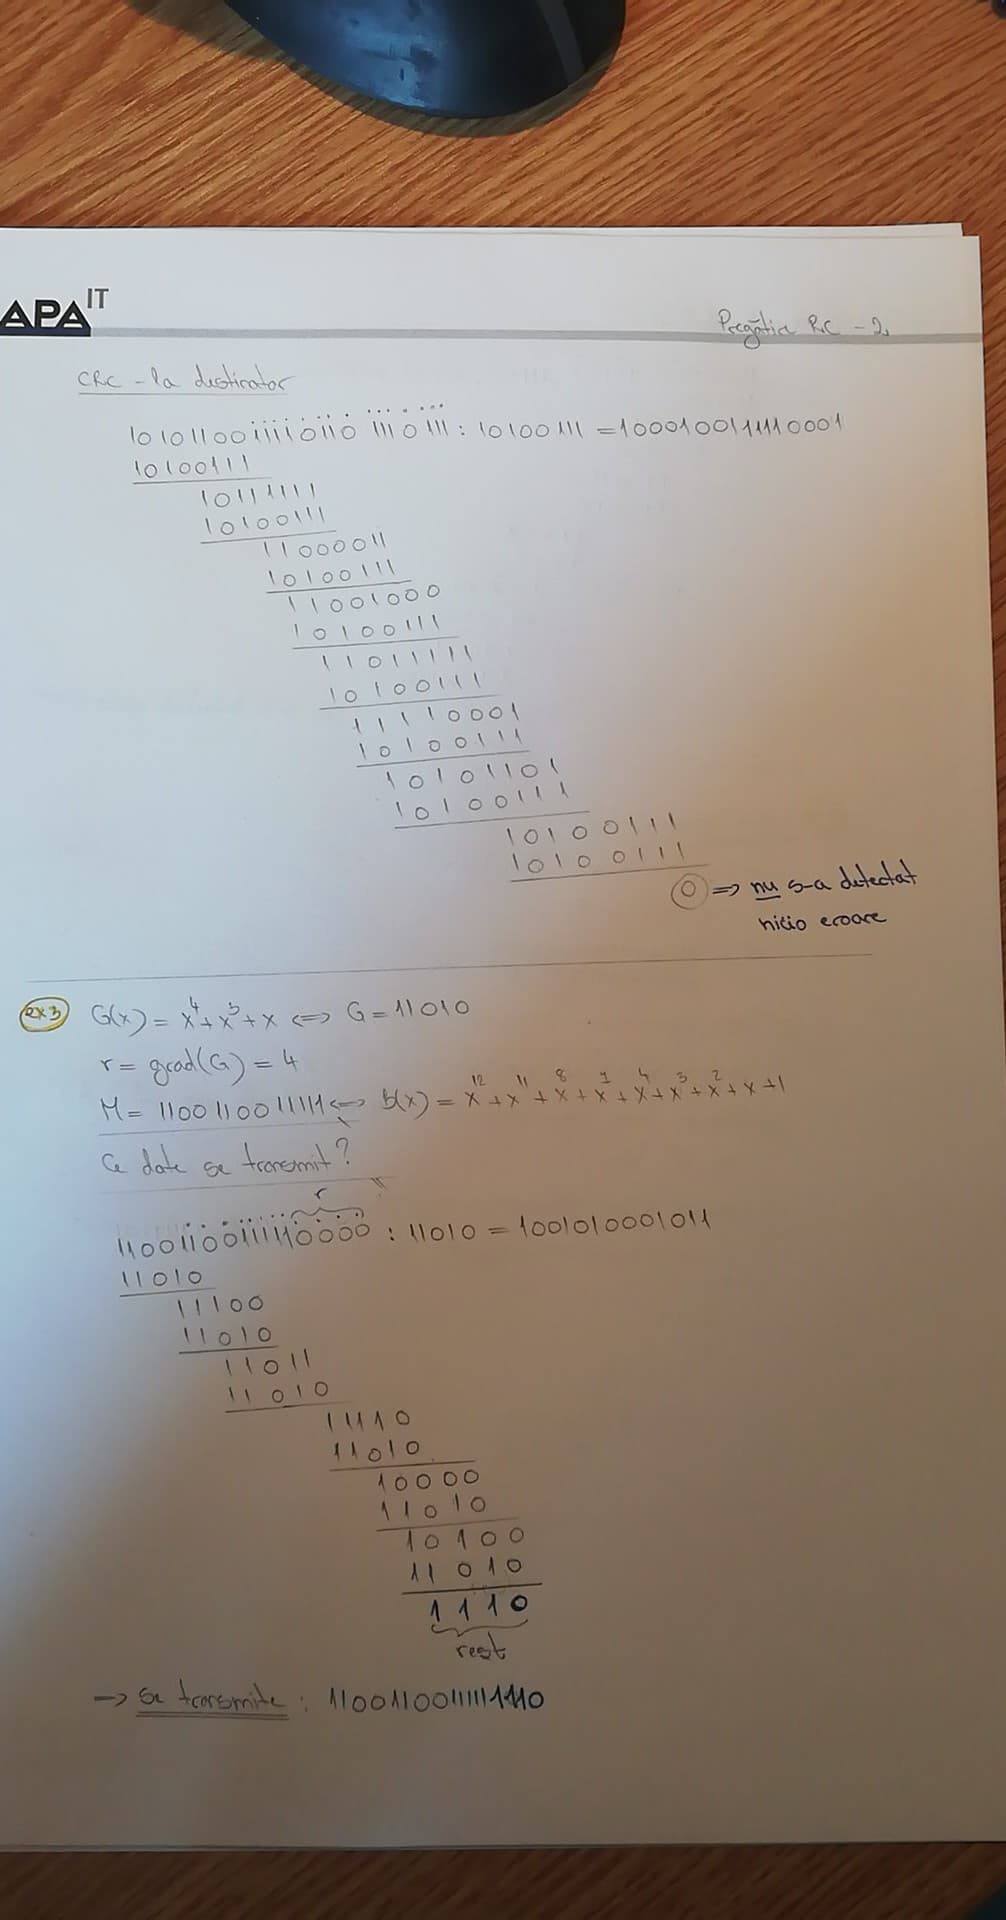 APA IT
Pregătire RC - 2
CRC - la destinatar
10101100111101101110111 : 10100111 = 1000100111110001
10100111
10111111
10100111
11000011
10100111
11001000
10100111
11011111
10100111
11110001
10100111
10101101
10100111
10100111
10100111
0 => nu s-a detectat
nicio eroare
ex3 G(x) = x⁴ + x³ + x <=> G = 11010
r = grad(G) = 4
M = 1100110011111 <=> b(x) = x¹² + x¹¹ + x⁸ + x⁷ + x⁴ + x³ + x² + x + 1
Ce date se transmit?
r
11001100111110000 : 11010 = 1001010001011
11010
11100
11010
11011
11010
11110
11010
10000
11010
10100
11010
1110
rest
=> se transmite : 11001100111111110